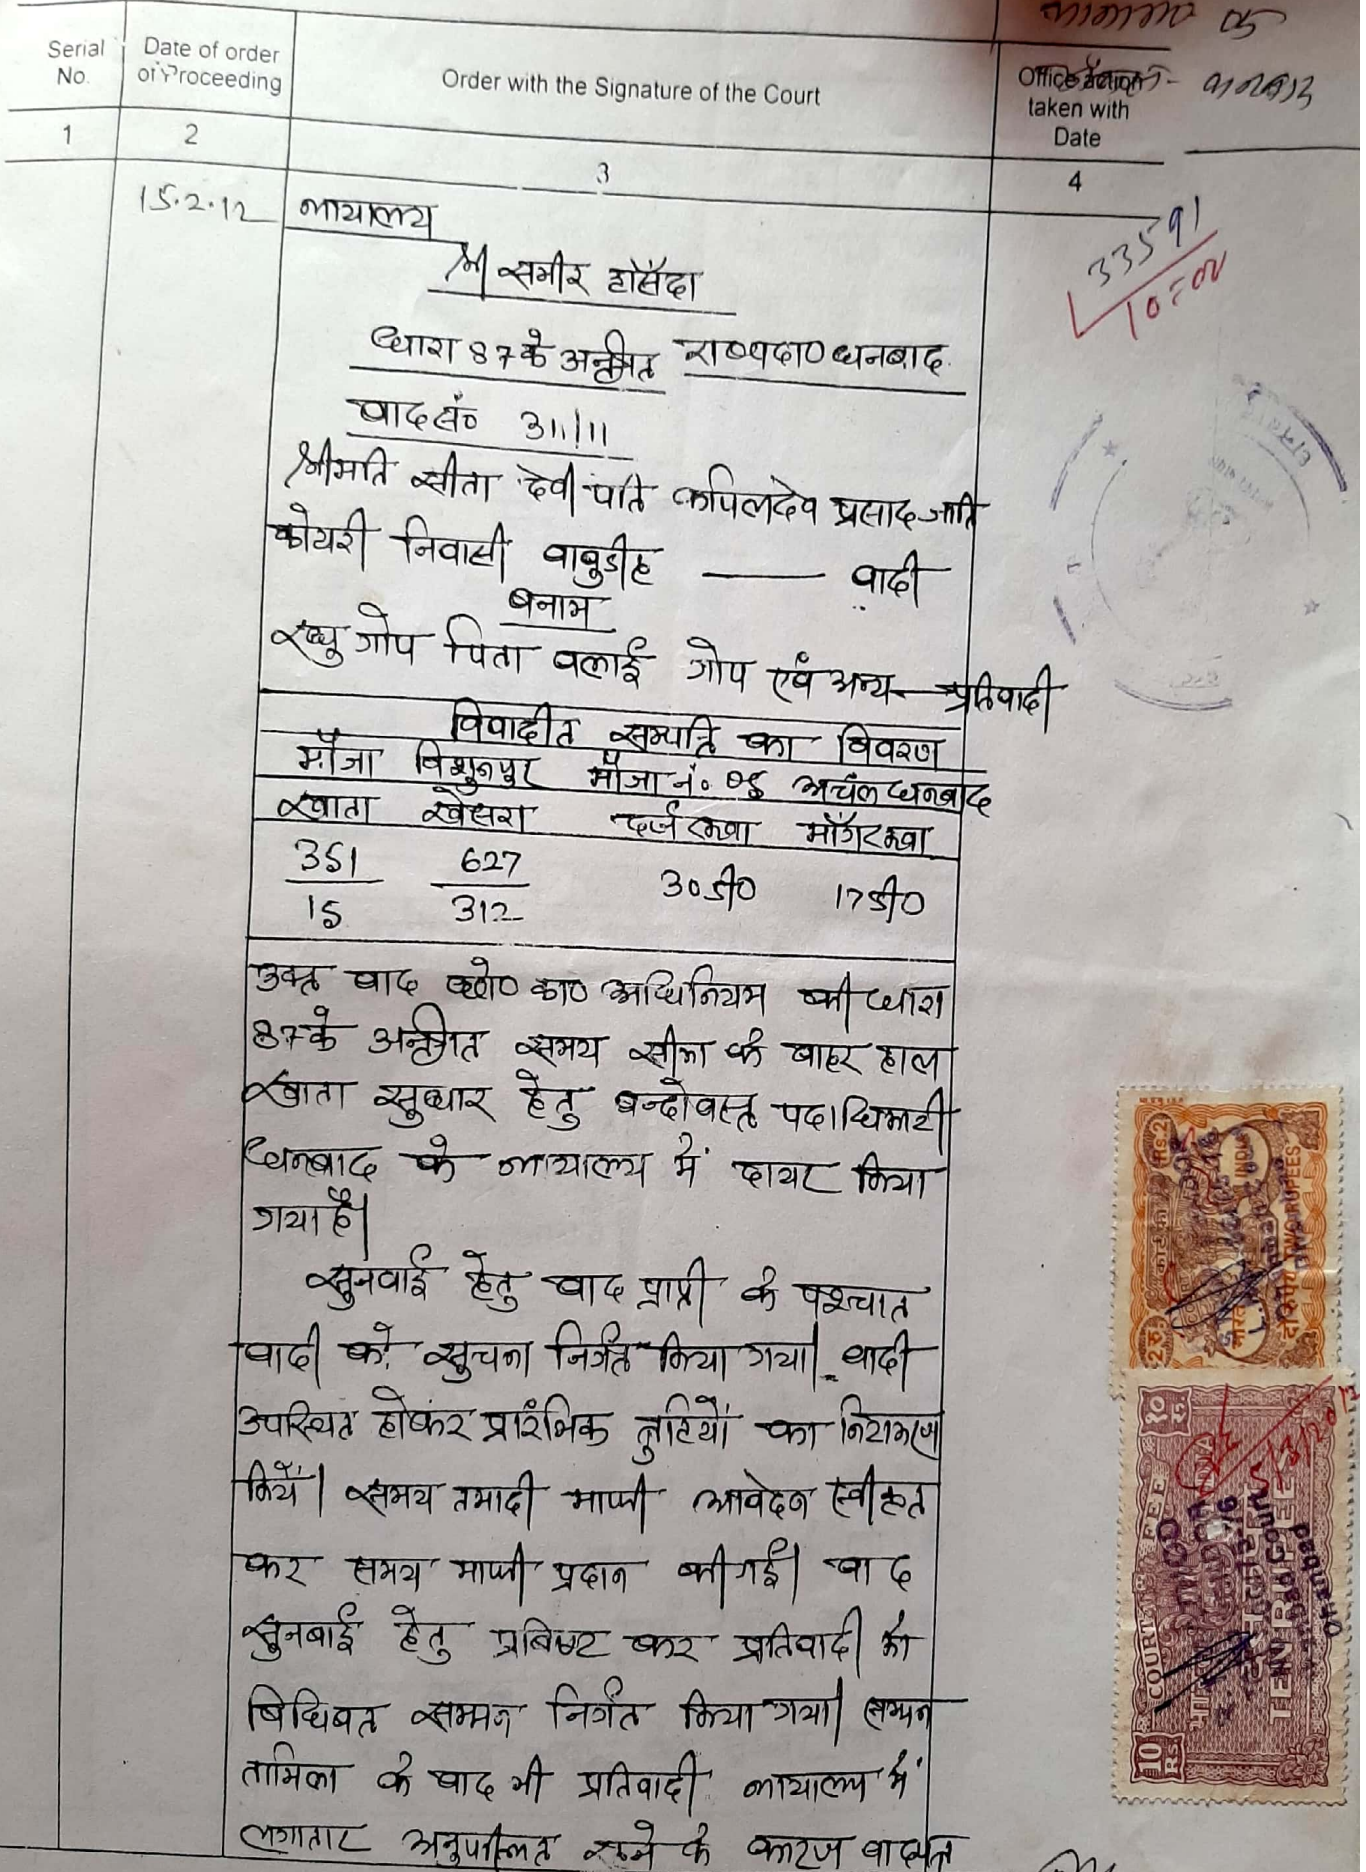 Serial No.
Date of order or Proceeding
Order with the Signature of the Court
Office action taken with Date
1
2
3
4
33591
10=00
15.2.12
न्यायालय
श्री समीर होसैदा
धारा 87 के अन्तर्गत रा०ब०पदा० धनबाद
वाद सं० 311/11
श्रीमति सीता देवी पति कपिलदेव प्रसाद जाति
कोयरी निवासी वाबुडीह — वादी
बनाम
रघु गोप पिता वलाई गोप एवं अन्य — प्रतिवादी
विवादीत सम्पति का विवरण
मौजा विशुनपुर मौजा नं० 05 अचंल धनबाद
खाता खेसरा दर्ज रकवा माँग रकवा
351 627 30 डी० 17 डी०
15 312
उक्त वाद छो० का० अधिनियम की धारा
87 के अन्तर्गत समय सीमा के बाहर हाल
खाता सुधार हेतु बन्दोवस्त पदाधिकारी
धनबाद के न्यायालय में दायर किया
गया है।
सुनवाई हेतु वाद प्राप्ती के पश्चात
वादी को सुचना निर्गत किया गया। वादी
उपस्थित होकर प्रारंभिक त्रुटियों का निराकरण
कियें। समय तमादी माफी आवेदन स्वीकृत
कर समय माफी प्रदान की गई। वाद
सुनबाई हेतु प्रबिष्ट कर प्रतिवादी को
बिधिवत सम्मन निर्गत किया गया। सम्मन
तामिला के वाद भी प्रतिवादी न्यायालय में
लगातार अनुपस्थित रहने के कारण वाद
2 रु. Rs.2
INDIA
दो रुपये TWO RUPEES
१० रु.
COURT FEE
INDIA
TEN RUPEES
10 Rs